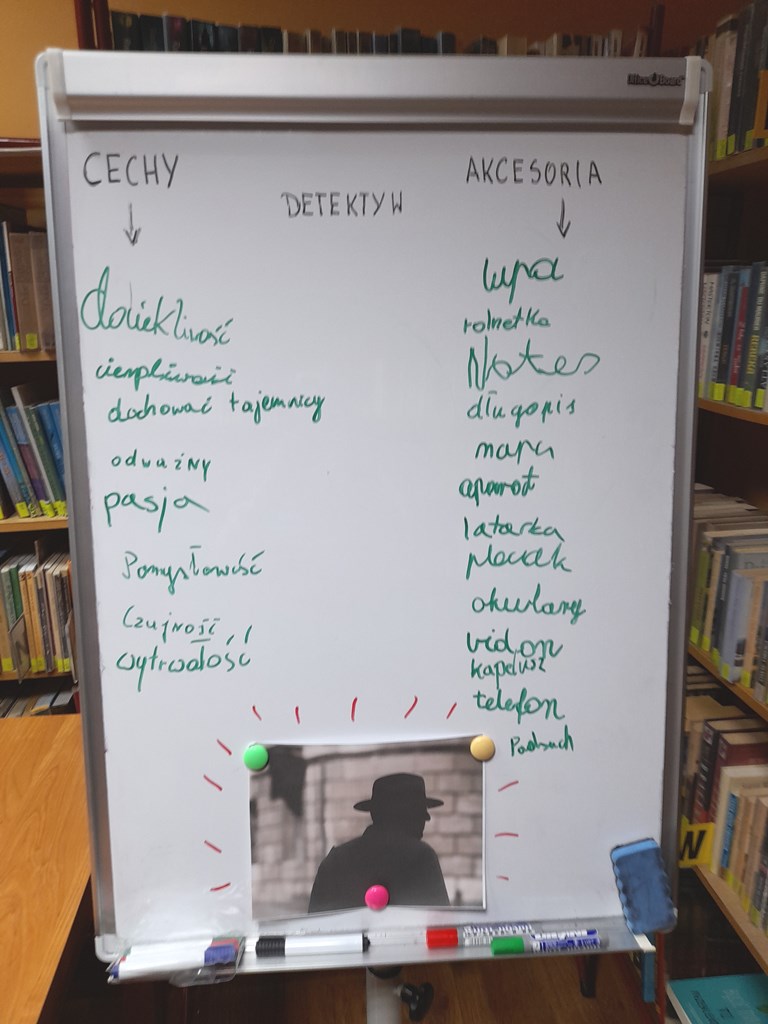 CECHY
DETEKTYW
AKCESORIA
dociekliwość
cierpliwość
dochować tajemnicy
odważny
pasja
Pomysłowość
Czujność
wytrwałość
lupa
rolnetka
Notes
długopis
mapa
aparat
latarka
plecak
okulary
kapelusz
telefon